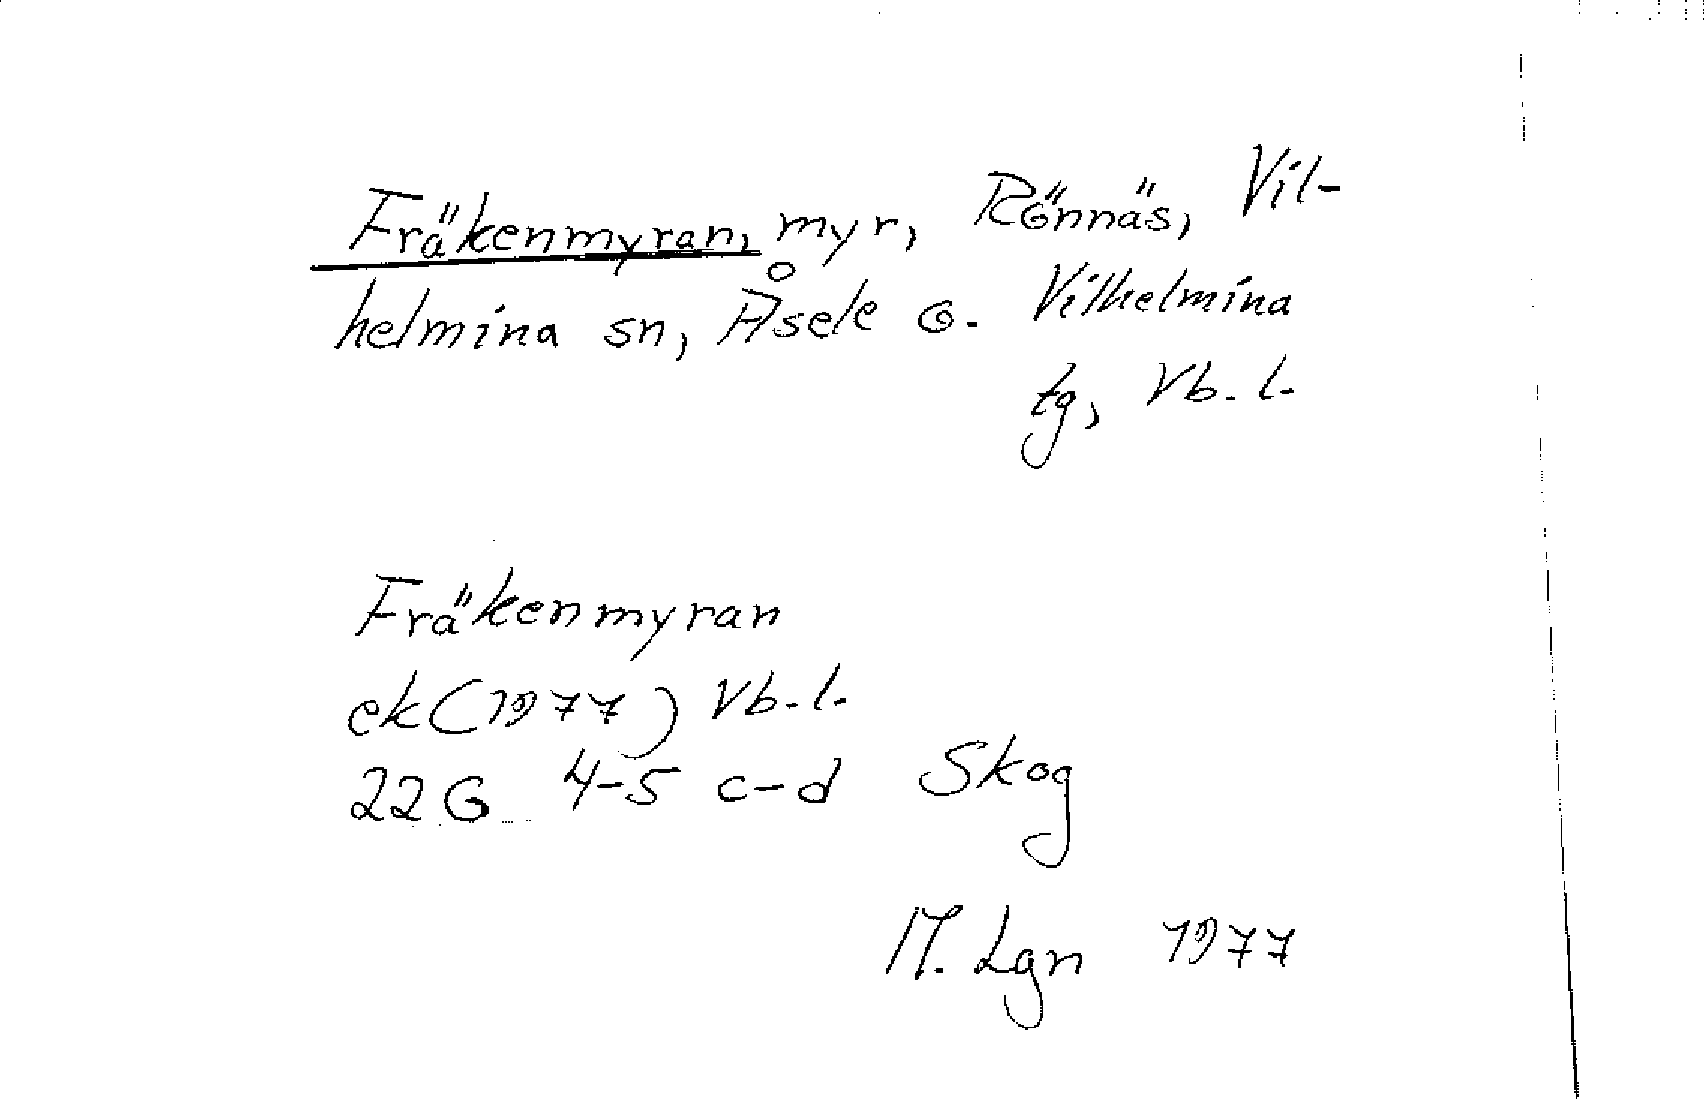 Fräkenmyran, myr, Rönnäs, Vil-
helmina sn, Åsele o. Vilhelmina
tg, Vb. l.
Fräkenmyran
ek (1977) Vb. l.
22 G 4-5 c-d Skog
M. Lgn 1977